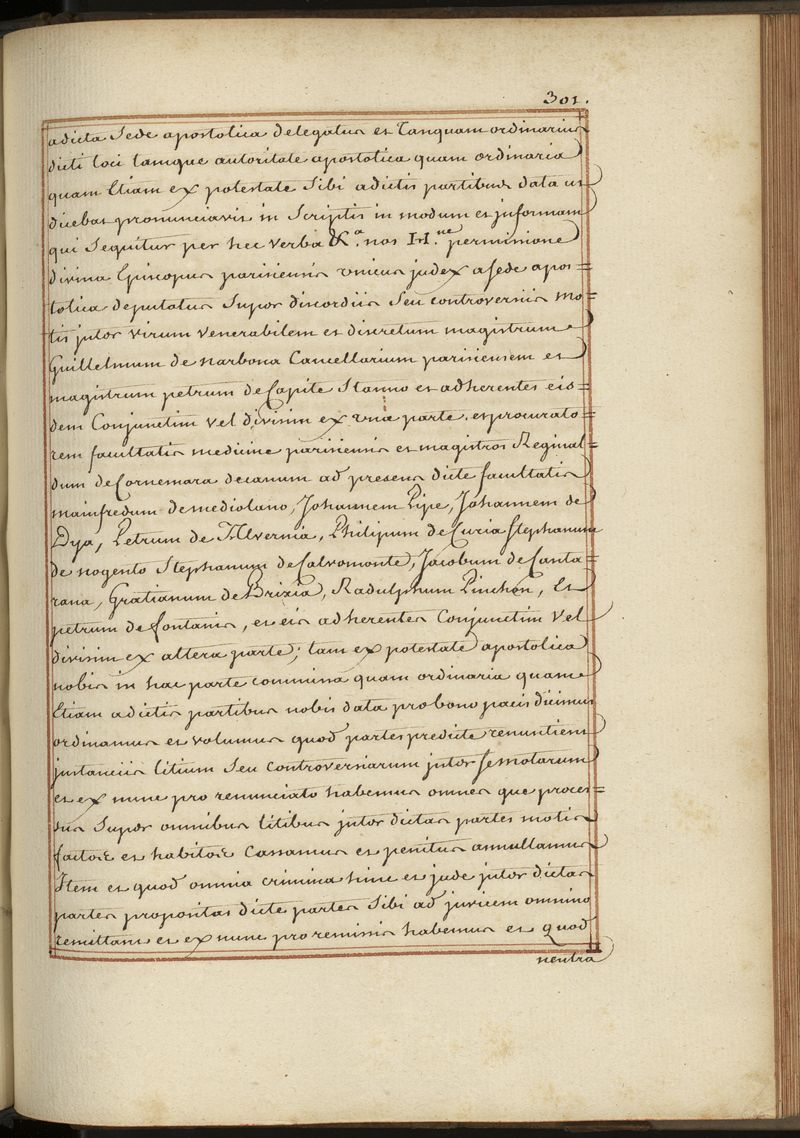 301.
adicta Sede apostolica delegatus et Tanquam ordinarius
dicti loci tamque autoritate apostolica quam ordinaria
quam Etiam ex potestate Sibi adictis partibus data ut
dicebat pronunciavit in Scriptis in modum et informam
qui Sequitur per hec verba &.a nos H.ne permissione
divina Episcopus parisiensis vnicus judex a sede apos=
tolica deputatus Super discordiis Seu controversiis mo=
tis jnter virum venerabilem et discretum magistrum
Guillelmum de narbona Cancellarium parisiensem et
magistrum petrum de Capite Stanno et adherentes eis=
dem Conjunctim vel divisim ex vna parte. et procurato=
rem facultatis medicine parisiensis et magistros Reginal=
dum de Cornemara decanum ad presens dicte facultatis
mainfredum demediolano, Johannem Pipe, Johannem de
Dya, Petrum de Alvernia, Philipum de Curia Stephanum
de nogento Stephanum de Calvomonte, Jacobum de Canta=
rana, Gratianum de Brixia, Radulphum Pinchon, Et
petrum de fontanis, et eis adherentes Conjunctim Vel
divisim ex altera parte; tam ex potestate apostolica
nobis in hac parte commissa quam ordinaria quam
Etiam adictis partibus nobis data pro bono pacis dicimus
ordinamus et volumus quod partes predicte renuntient
jnstanciis litium Seu controversiarum jnter se motarum
et ex nunc pro renunciato habemus omnes que proces=
sus Super omnibus litibus jnter dictas partes motis
factos et habitos Cassamus et penitus annullamus
Item et quod omnia crimina hinc et jnde jnter dictas
partes propositas dicte partes Sibi ad jnvicem omnino
remittant et ex nunc pro remissis habemus et quod
neutra